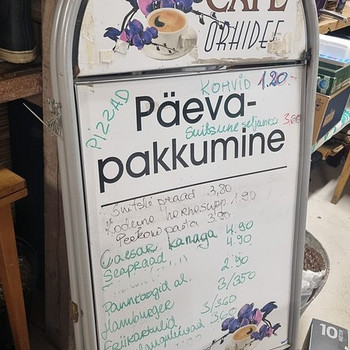 CAFE
ORHIDEE
KOHVID 1.20
PIZZAD
Päeva-
Suitsune seljanka 3.60
pakkumine
Šnitsel praad 3,80
Kodune hernesupp 1.90
Peekoni pasta 3.90
Caesar kanaga 4.90
Seapraad 4.90
2.50
Pannkoogid al.
Hamburger 3/350
Friikartulid 3/360
360
10